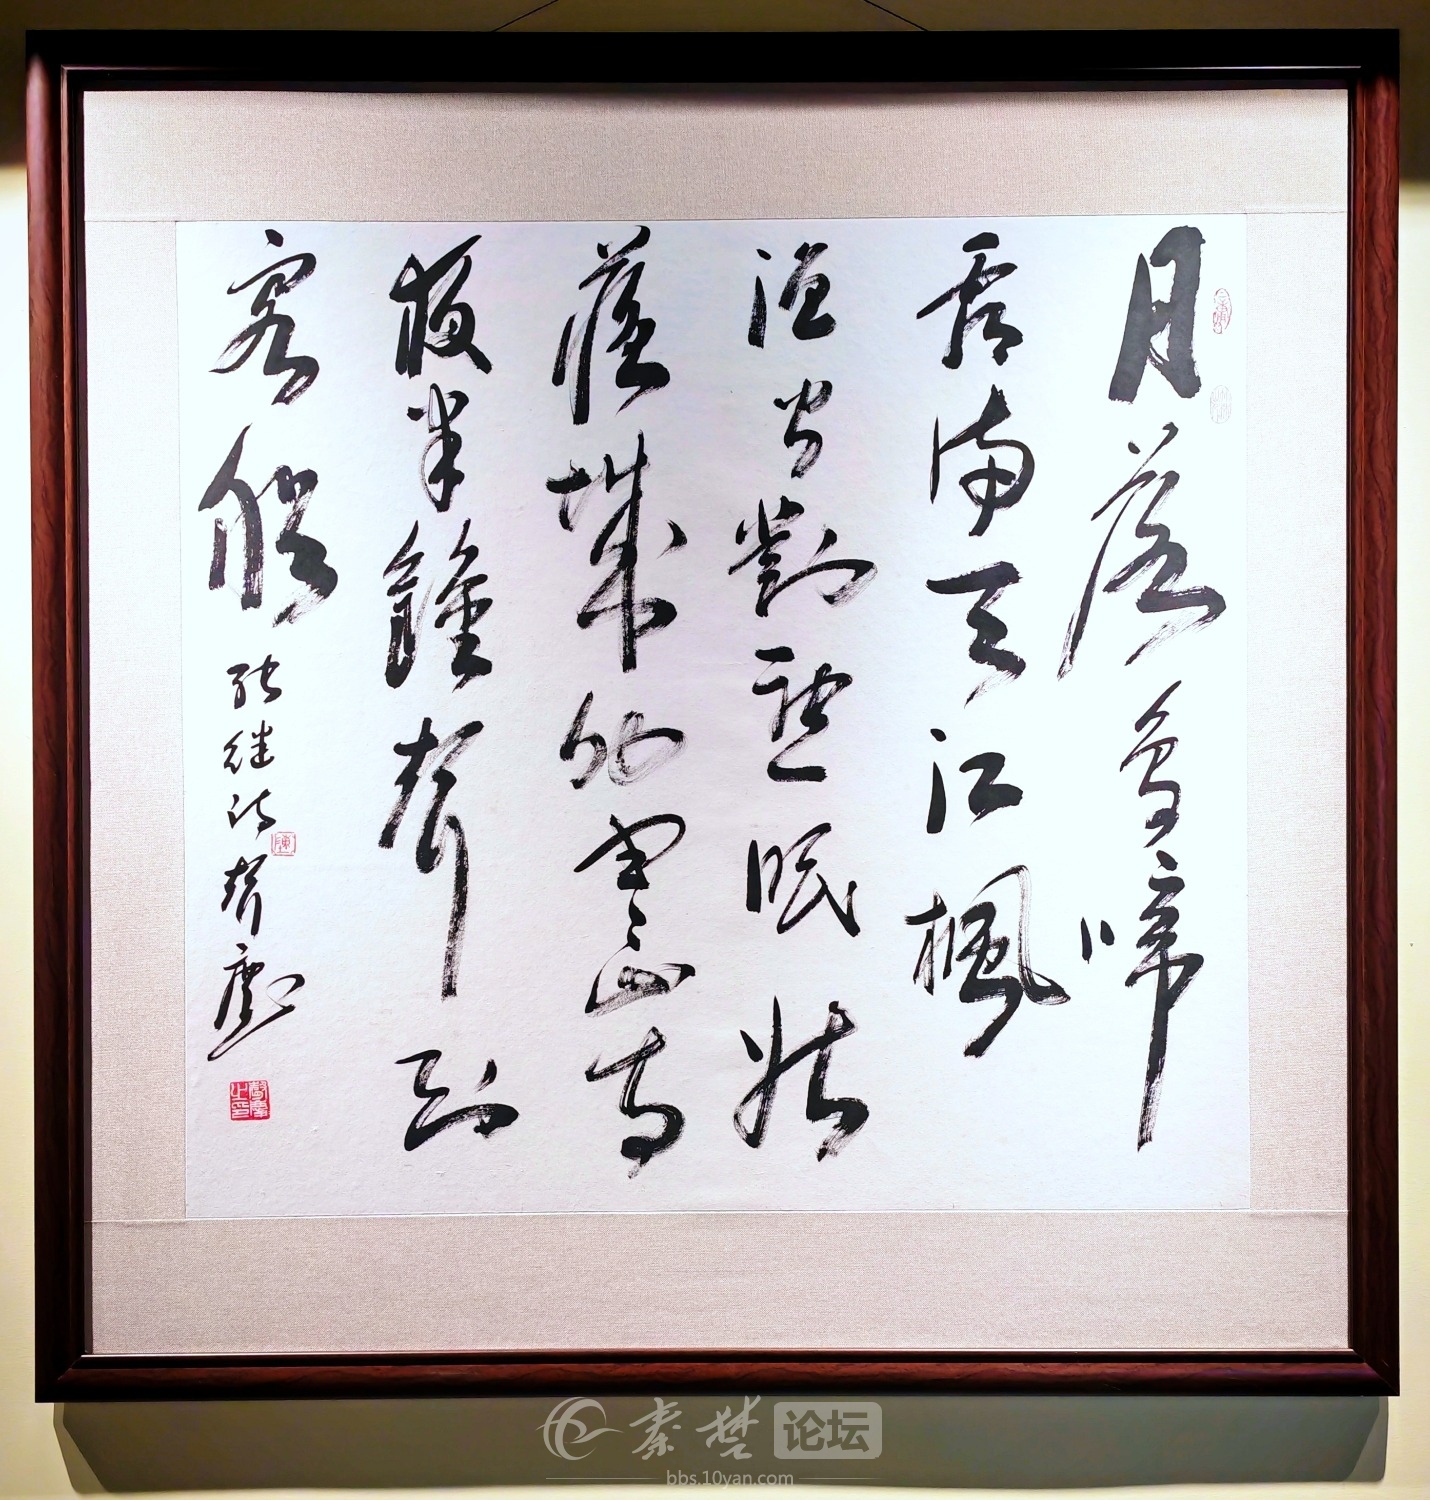 月落烏啼
霜滿天江楓
漁火對愁眠姑
蘇城外寒山寺
夜半鐘聲到
客船 张继诗 聲慶
陳
聲慶之印
秦楚论坛
bbs.10yan.com